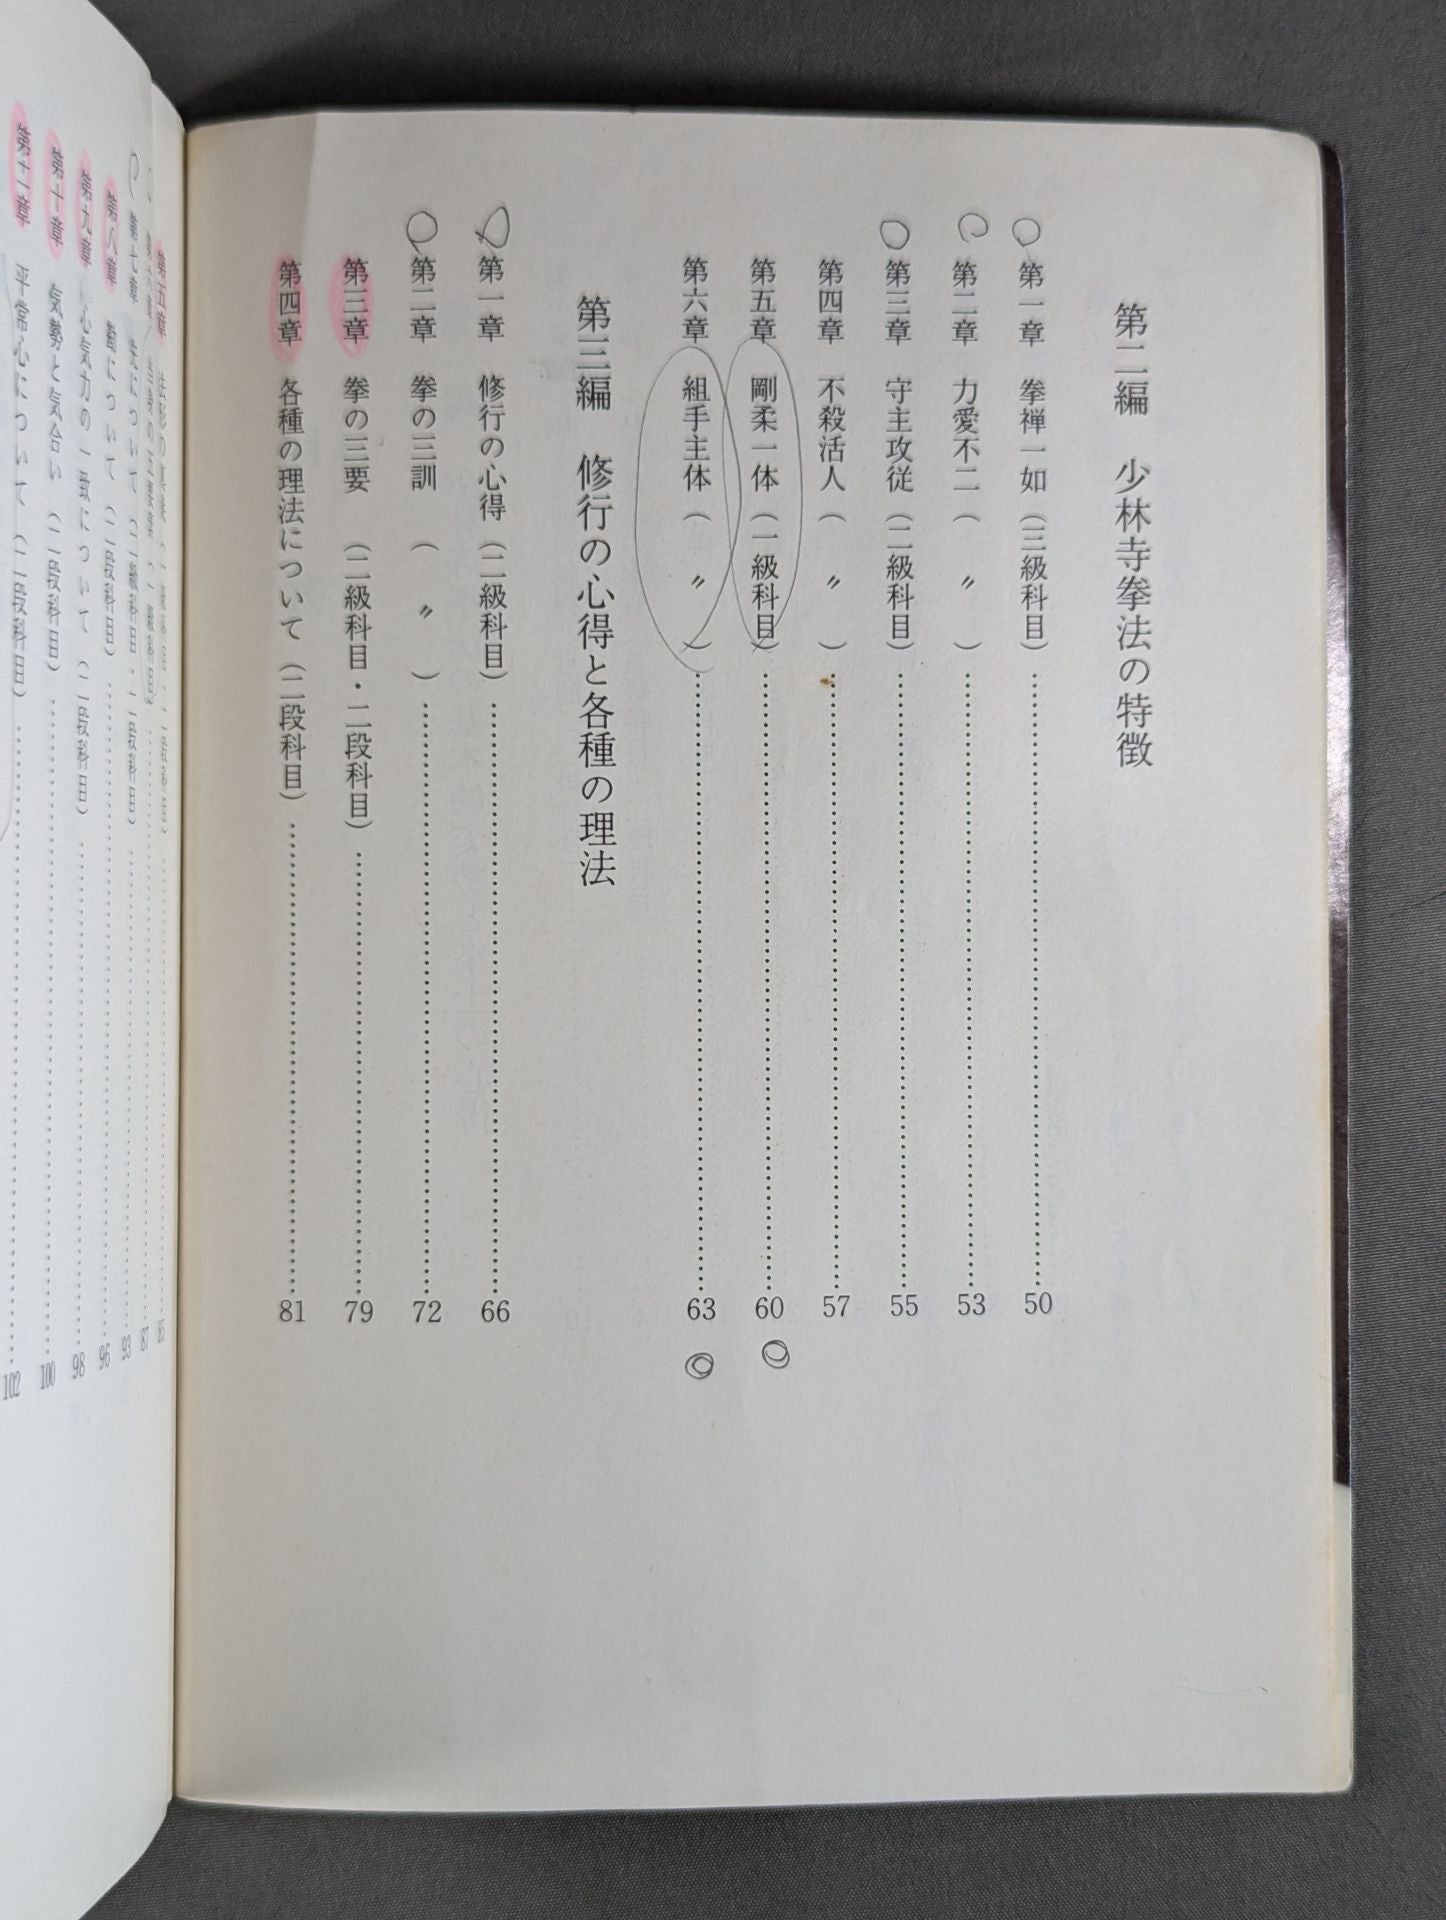 第二編　少林寺拳法の特徴
第一章　拳禅一如（三級科目）……50
第二章　力愛不二（　〃　）……53
第三章　守主攻従（二級科目）……55
第四章　不殺活人（　〃　）……57
第五章　剛柔一体（一級科目）……60
第六章　組手主体（　〃　）……63
第三編　修行の心得と各種の理法
第一章　修行の心得（二級科目）……66
第二章　拳の三訓　（　〃　）……72
第三章　拳の三要　（二級科目・二段科目）……79
第四章　各種の理法について（二段科目）……81
第五章　法形の真義（一級科目・二段科目）……85
当身の五要素（一級科目）……87
第七章　先について（二級科目・二段科目）……93
第八章　勘について（二段科目）……96
第九章　心気力の一致について（二段科目）……98
第十章　気勢と気合い（二段科目）……100
第十一章　平常心について（二段科目）……102